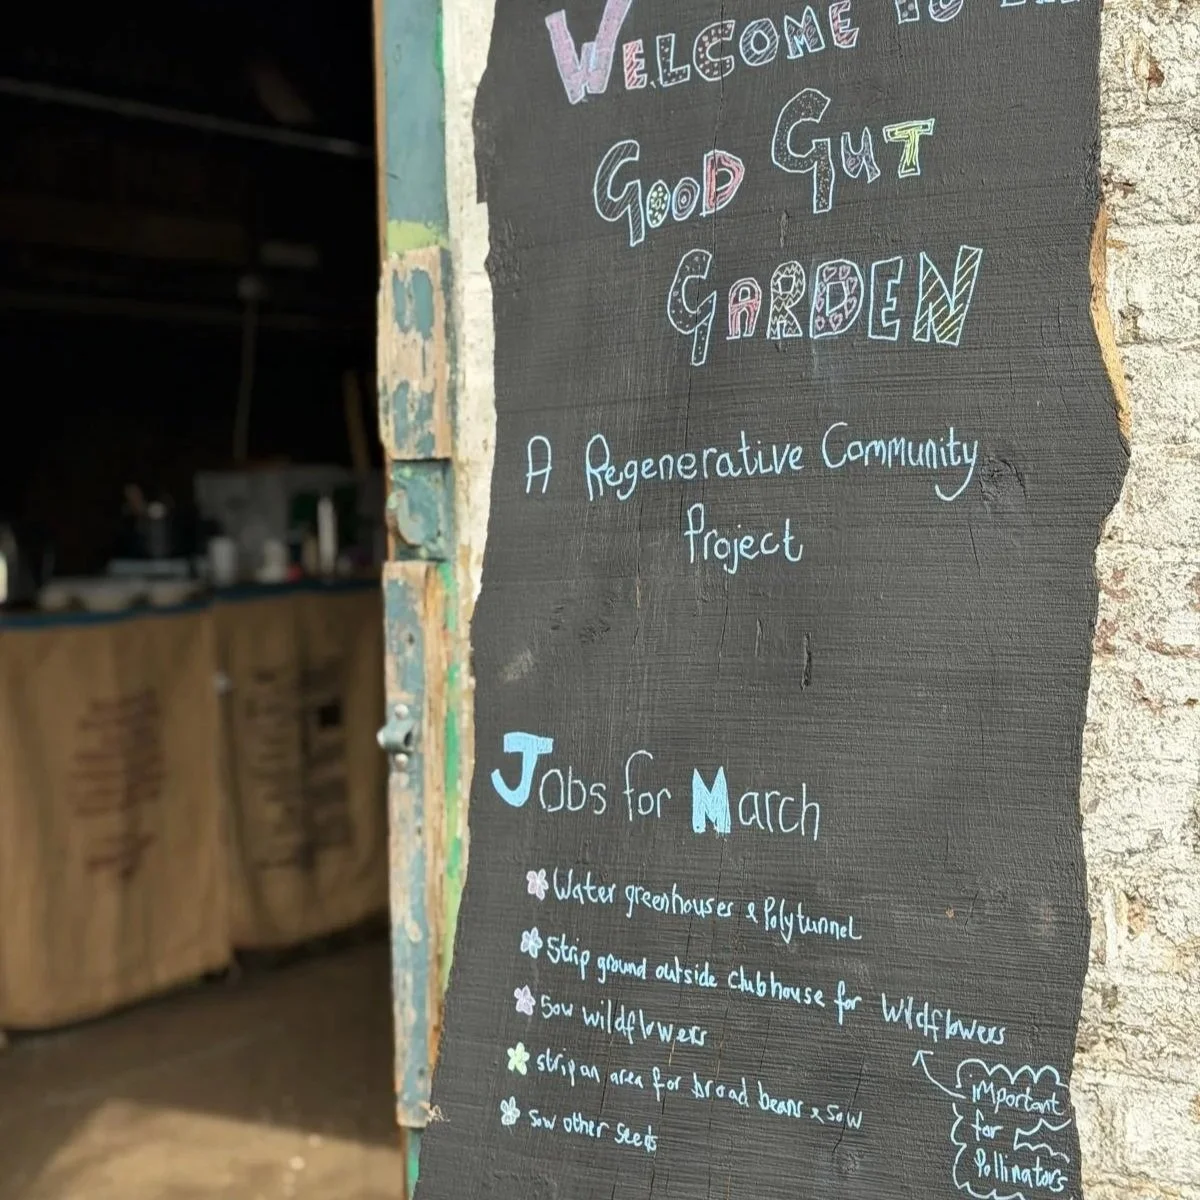 WELCOME TO
GOOD GUT
GARDEN
A Regenerative Community
Project
Jobs for March
Water greenhouses & Polytunnel
Strip ground outside clubhouse for Wildflowers
Sow wildflowers
strip an area for broad beans & sow
sow other seeds
important
for
Pollinators